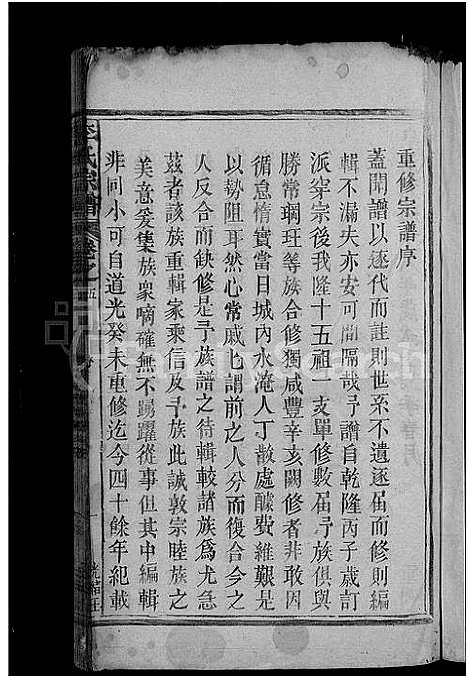 重修宗譜序
蓋聞譜以逐代而註則世系不遺逐届而修則編
輯不漏夫亦安可間隔哉予譜自乾隆丙子歲訂
派穿宗後我隆十五祖一支單修數届予族俱與
勝常琱玨等族合修獨咸豐辛亥闕修者非敢因
循怠惰實當日城內水淹人丁散處醵費維艱是
以勢阻耳然心常戚匕謂前之人分而復合今之
人反合而缺修是予族譜之待輯較諸族為尤急
茲者該族重輯家乘信及予族此誠敦宗睦族之
美意爰集族衆嘀確無不踴躍從事但其中編輯
非同小可自道光癸未重修迄今四十餘年紀載
氏宗譜 卷之五
序
一